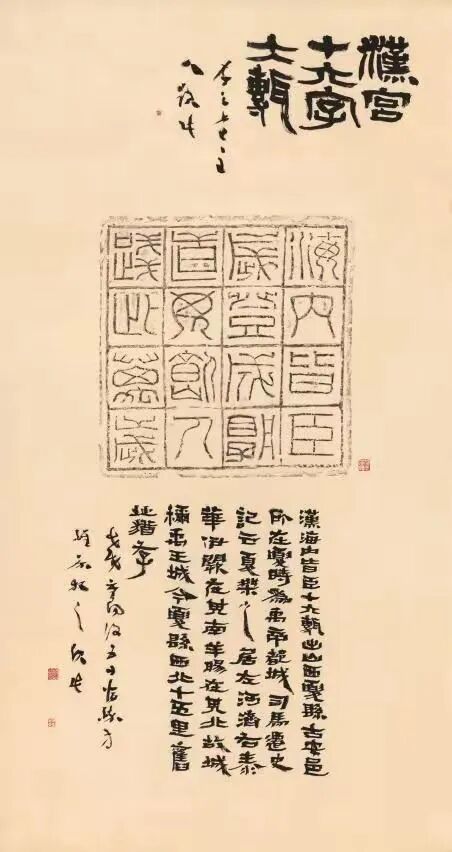 漢宮
十六字
大甎
海内皆臣
歲登成孰
道毋飢人
踐此萬歲
漢海内皆臣十六甎出山西夏縣古安邑
所在夏時為禹帝都城司馬遷史
記云夏桀之居左河濟右泰
華伊闕在其南羊腸在其北故城
稱禹王城今夏縣西北十五里舊
址猶存
戊戌